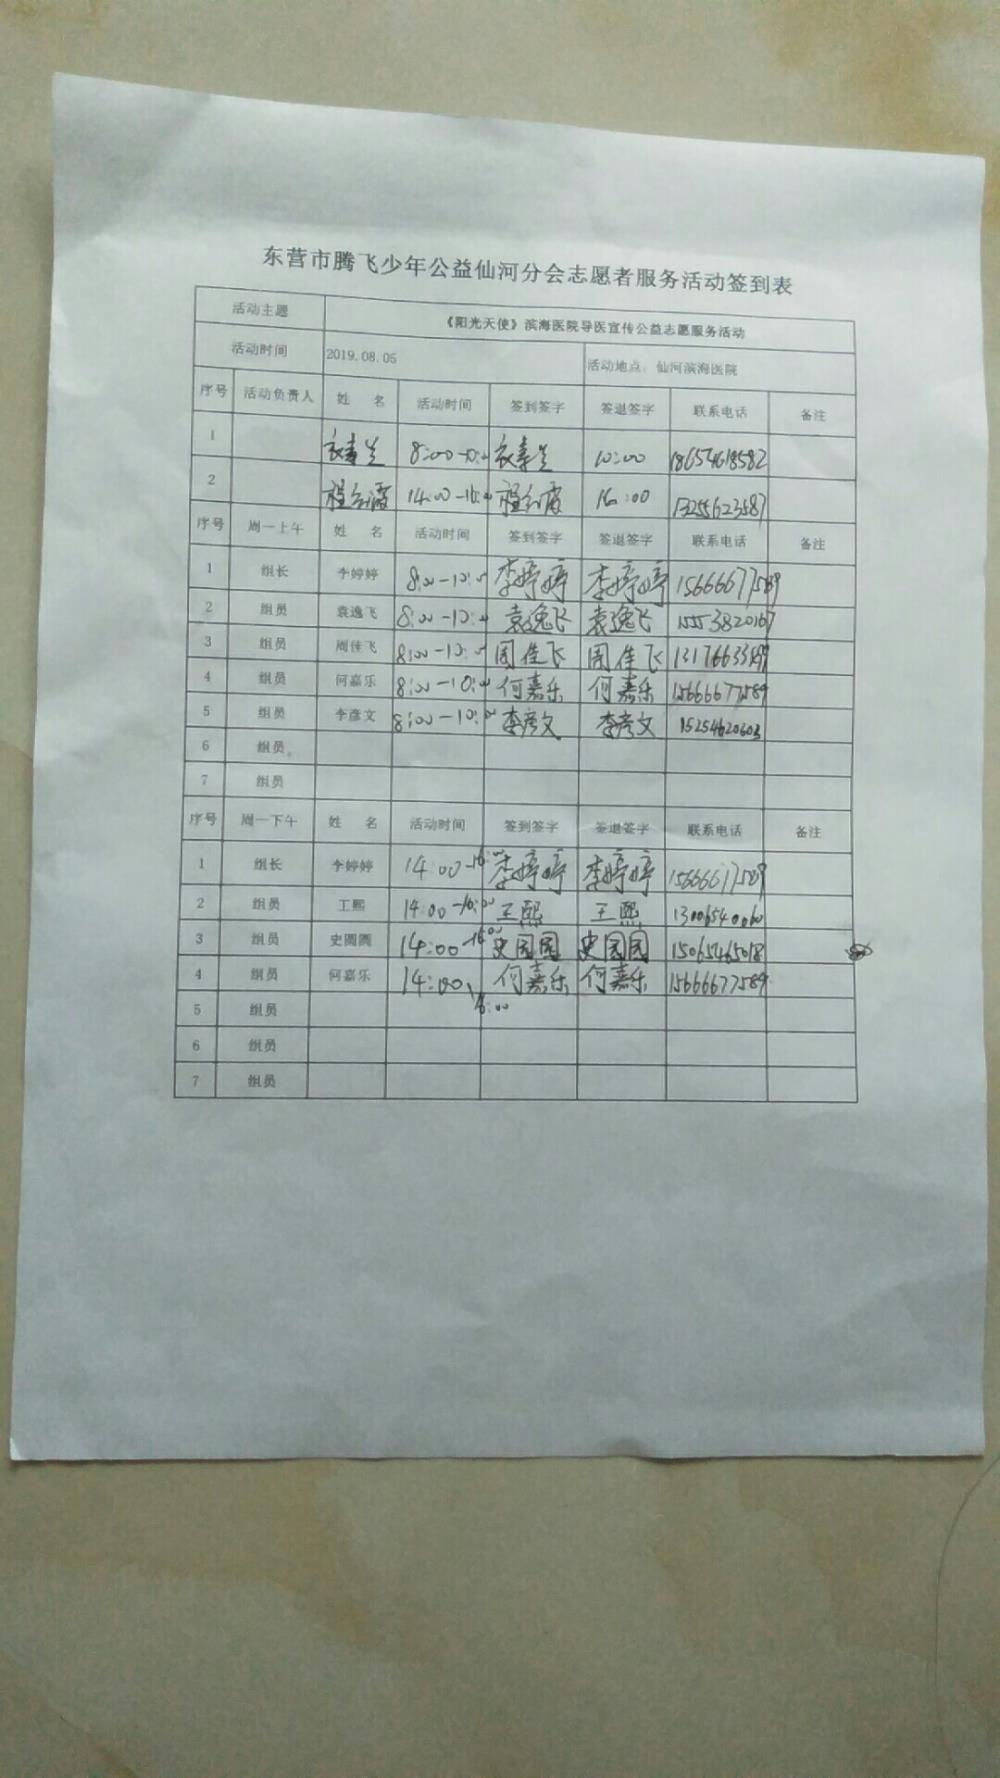 东营市腾飞少年公益仙河分会志愿者服务活动签到表
活动主题 《阳光天使》滨海医院导医宣传公益志愿服务活动
活动时间 2019.08.05 活动地点：仙河滨海医院
序号 活动负责人 姓 名 活动时间 签到签字 签退签字 联系电话 备注
1 8:00-10:00 10:00 18654618582
2 14:00-16:00 16:00 13255623587
序号 周一上午 姓 名 活动时间 签到签字 签退签字 联系电话 备注
1 组长 李婷婷 8:00-10:00 李婷婷 李婷婷 15666677589
2 组员 袁逸飞 8:00-10:00 袁逸飞 袁逸飞 15553820167
3 组员 周佳飞 8:00-10:00 周佳飞 周佳飞
4 组员 何嘉乐 8:00-10:00 何嘉乐 何嘉乐 15666677589
5 组员 李彦文 8:00-10:00 李彦文 李彦文 15254620603
6 组员
7 组员
序号 周一下午 姓 名 活动时间 签到签字 签退签字 联系电话 备注
1 组长 李婷婷 14:00-16: 李婷婷 李婷婷 15666617589
2 组员 王熙 14:00-16:00 王熙 王熙 13006540060
3 组员 史圆圆 14:00-16:00 史园园 史园园 15065465018
4 组员 何嘉乐 14:00、16:00 何嘉乐 何嘉乐 15666677589
5 组员
6 组员
7 组员